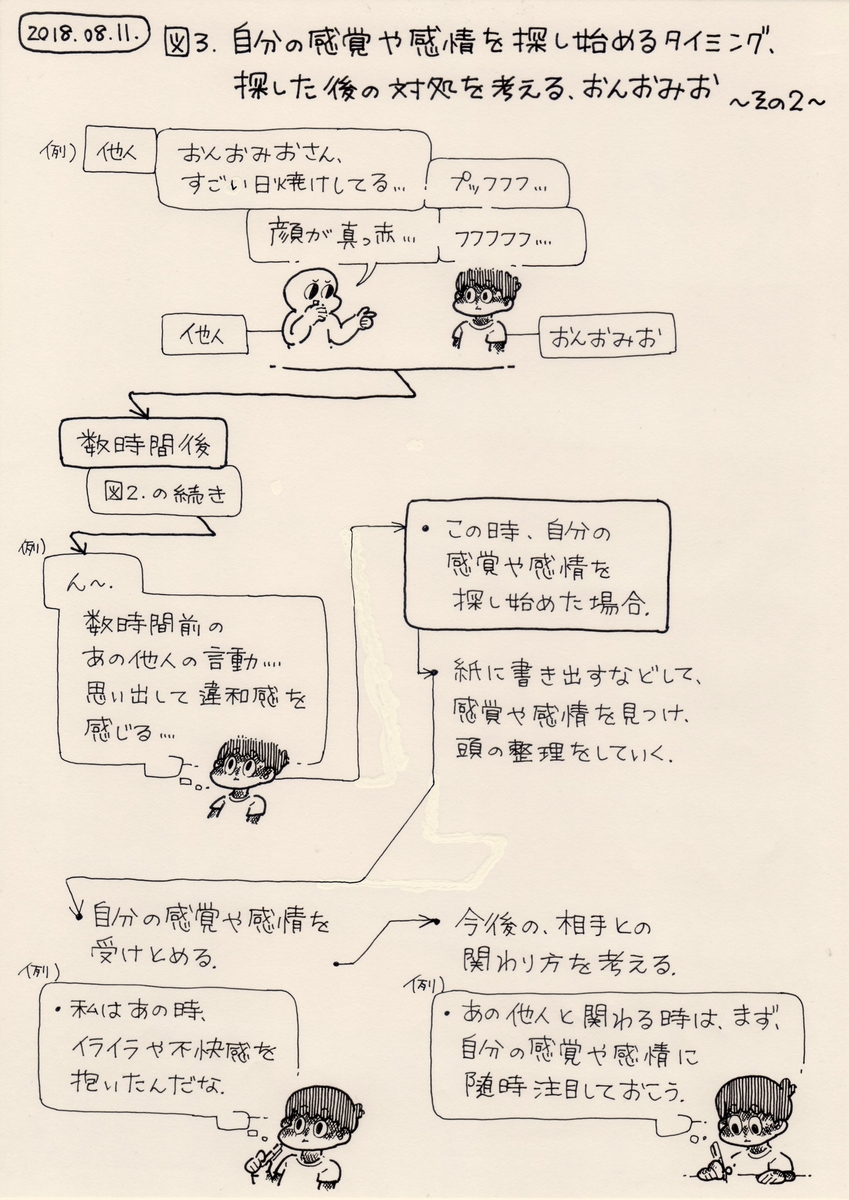 2018.08.11.
図3. 自分の感覚や感情を探し始めるタイミング、
探した後の対処を考える、おんおみお
～その2～
例)
他人
おんおみおさん、
すごい日焼けしてる…
プッフフフ…
顔が真っ赤…
フフフフフ….
他人
おんおみお
数時間後
図2.の続き
例)
ん～.
数時間前の
あの他人の言動….
思い出して違和感を
感じる….
・この時、自分の
感覚や感情を
探し始めた場合.
・紙に書き出すなどして、
感覚や感情を見つけ、
頭の整理をしていく.
・自分の感覚や感情を
受けとめる.
例)
・私はあの時、
イライラや不快感を
抱いたんだな.
・今後の、相手との
関わり方を考える.
例)
・あの他人と関わる時は、まず、
自分の感覚や感情に
随時注目しておこう.